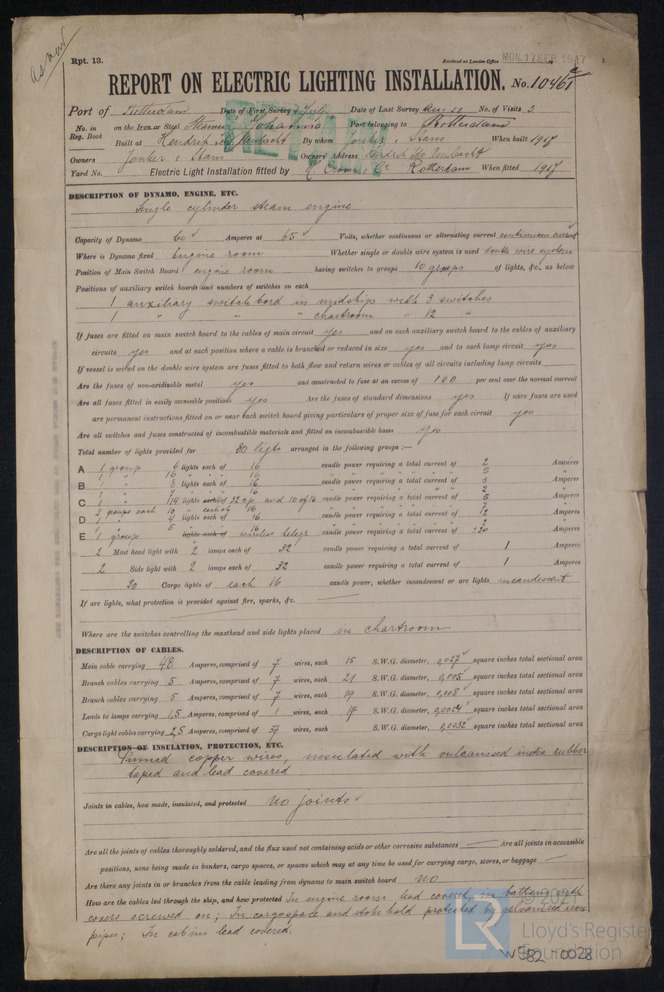 as now
Rpt. 13.
Received at London Office MON. 17 SEP. 1917
REPORT ON ELECTRIC LIGHTING INSTALLATION. No. 10461
Port of Rotterdam Date of First Survey July Date of Last Survey No. of Visits 3
No. in Reg. Book on the Iron or Steel Johanna Port belonging to Rotterdam
Built at Hendrik Ido Ambacht By whom Jonker & Stans When built 1917
Owners Jonker & Stans Owners' Address Hendrik Ido Ambacht
Yard No. Electric Light Installation fitted by Rotterdam When fitted 1917
DESCRIPTION OF DYNAMO, ENGINE, ETC.
Single cylinder steam engine
Capacity of Dynamo 60 Amperes at 65 Volts, whether continuous or alternating current continuous current
Where is Dynamo fixed Engine room Whether single or double wire system is used double wire system
Position of Main Switch Board engine room having switches to groups 10 groups of lights, &c., as below
Positions of auxiliary switch boards and numbers of switches on each
1 auxiliary switch bord in midship with 3 switches
1 " " " chartroom " 12 "
If fuses are fitted on main switch board to the cables of main circuit yes and on each auxiliary switch board to the cables of auxiliary
circuits yes and at each position where a cable is branched or reduced in size yes and to each lamp circuit yes
If vessel is wired on the double wire system are fuses fitted to both flow and return wires or cables of all circuits including lamp circuits
Are the fuses of non-oxidizable metal yes and constructed to fuse at an excess of 100 per cent over the normal current
Are all fuses fitted in easily accessible positions yes Are the fuses of standard dimensions yes If wire fuses are used
are permanent instructions fitted on or near each switch board giving particulars of proper size of fuse for each circuit yes
Are all switches and fuses constructed of incombustible materials and fitted on incombustible bases yes
Total number of lights provided for 80 ligts arranged in the following groups :—
A 1 group 6 lights each of 16 candle power requiring a total current of 2 Amperes
B 1 " 8 lights each of 16 candle power requiring a total current of 3 Amperes
C 1 " 14 lights each of 32 c.p. and 10 of 16 candle power requiring a total current of Amperes
D 1 " 4 lights each of 16 candle power requiring a total current of Amperes
E 1 group lights each of wireless telegr candle power requiring a total current of Amperes
2 Mast head light with 2 lamps each of 32 candle power requiring a total current of 1 Amperes
2 Side light with 2 lamps each of 32 candle power requiring a total current of 1 Amperes
20 Cargo lights of each 16 candle power, whether incandescent or arc lights incandescent
If arc lights, what protection is provided against fire, sparks, &c.
Where are the switches controlling the masthead and side lights placed in chartroom
DESCRIPTION OF CABLES.
Main cable carrying 48 Amperes, comprised of 7 wires, each 15 S.W.G. diameter, 0,027 square inches total sectional area
Branch cables carrying 5 Amperes, comprised of 7 wires, each 21 S.W.G. diameter, 0,005 square inches total sectional area
Branch cables carrying 5 Amperes, comprised of 7 wires, each 19 S.W.G. diameter, 0,008 square inches total sectional area
Leads to lamps carrying 1,5 Amperes, comprised of 1 wires, each 17 S.W.G. diameter, 0,0024 square inches total sectional area
Cargo light cables carrying 2,5 Amperes, comprised of 37 wires, each S.W.G. diameter, 0,0032 square inches total sectional area
DESCRIPTION OF INSULATION, PROTECTION, ETC.
Tinned copper wires, insulated with vulcanised india rubber
taped and lead covered
Joints in cables, how made, insulated, and protected no joints
Are all the joints of cables thoroughly soldered, and the flux used not containing acids or other corrosive substances — Are all joints in accessible
positions, none being made in bunkers, cargo spaces, or spaces which may at any time be used for carrying cargo, stores, or baggage —
Are there any joints in or branches from the cable leading from dynamo to main switch board no
How are the cables led through the ship, and how protected In engine room lead covered, in battang with
covers screwed on; In cargospace and stokehold protected by galvanised iron
pipes; In cabins lead covered.
© 2021
LR Lloyd's Register
Foundation
W582 0028